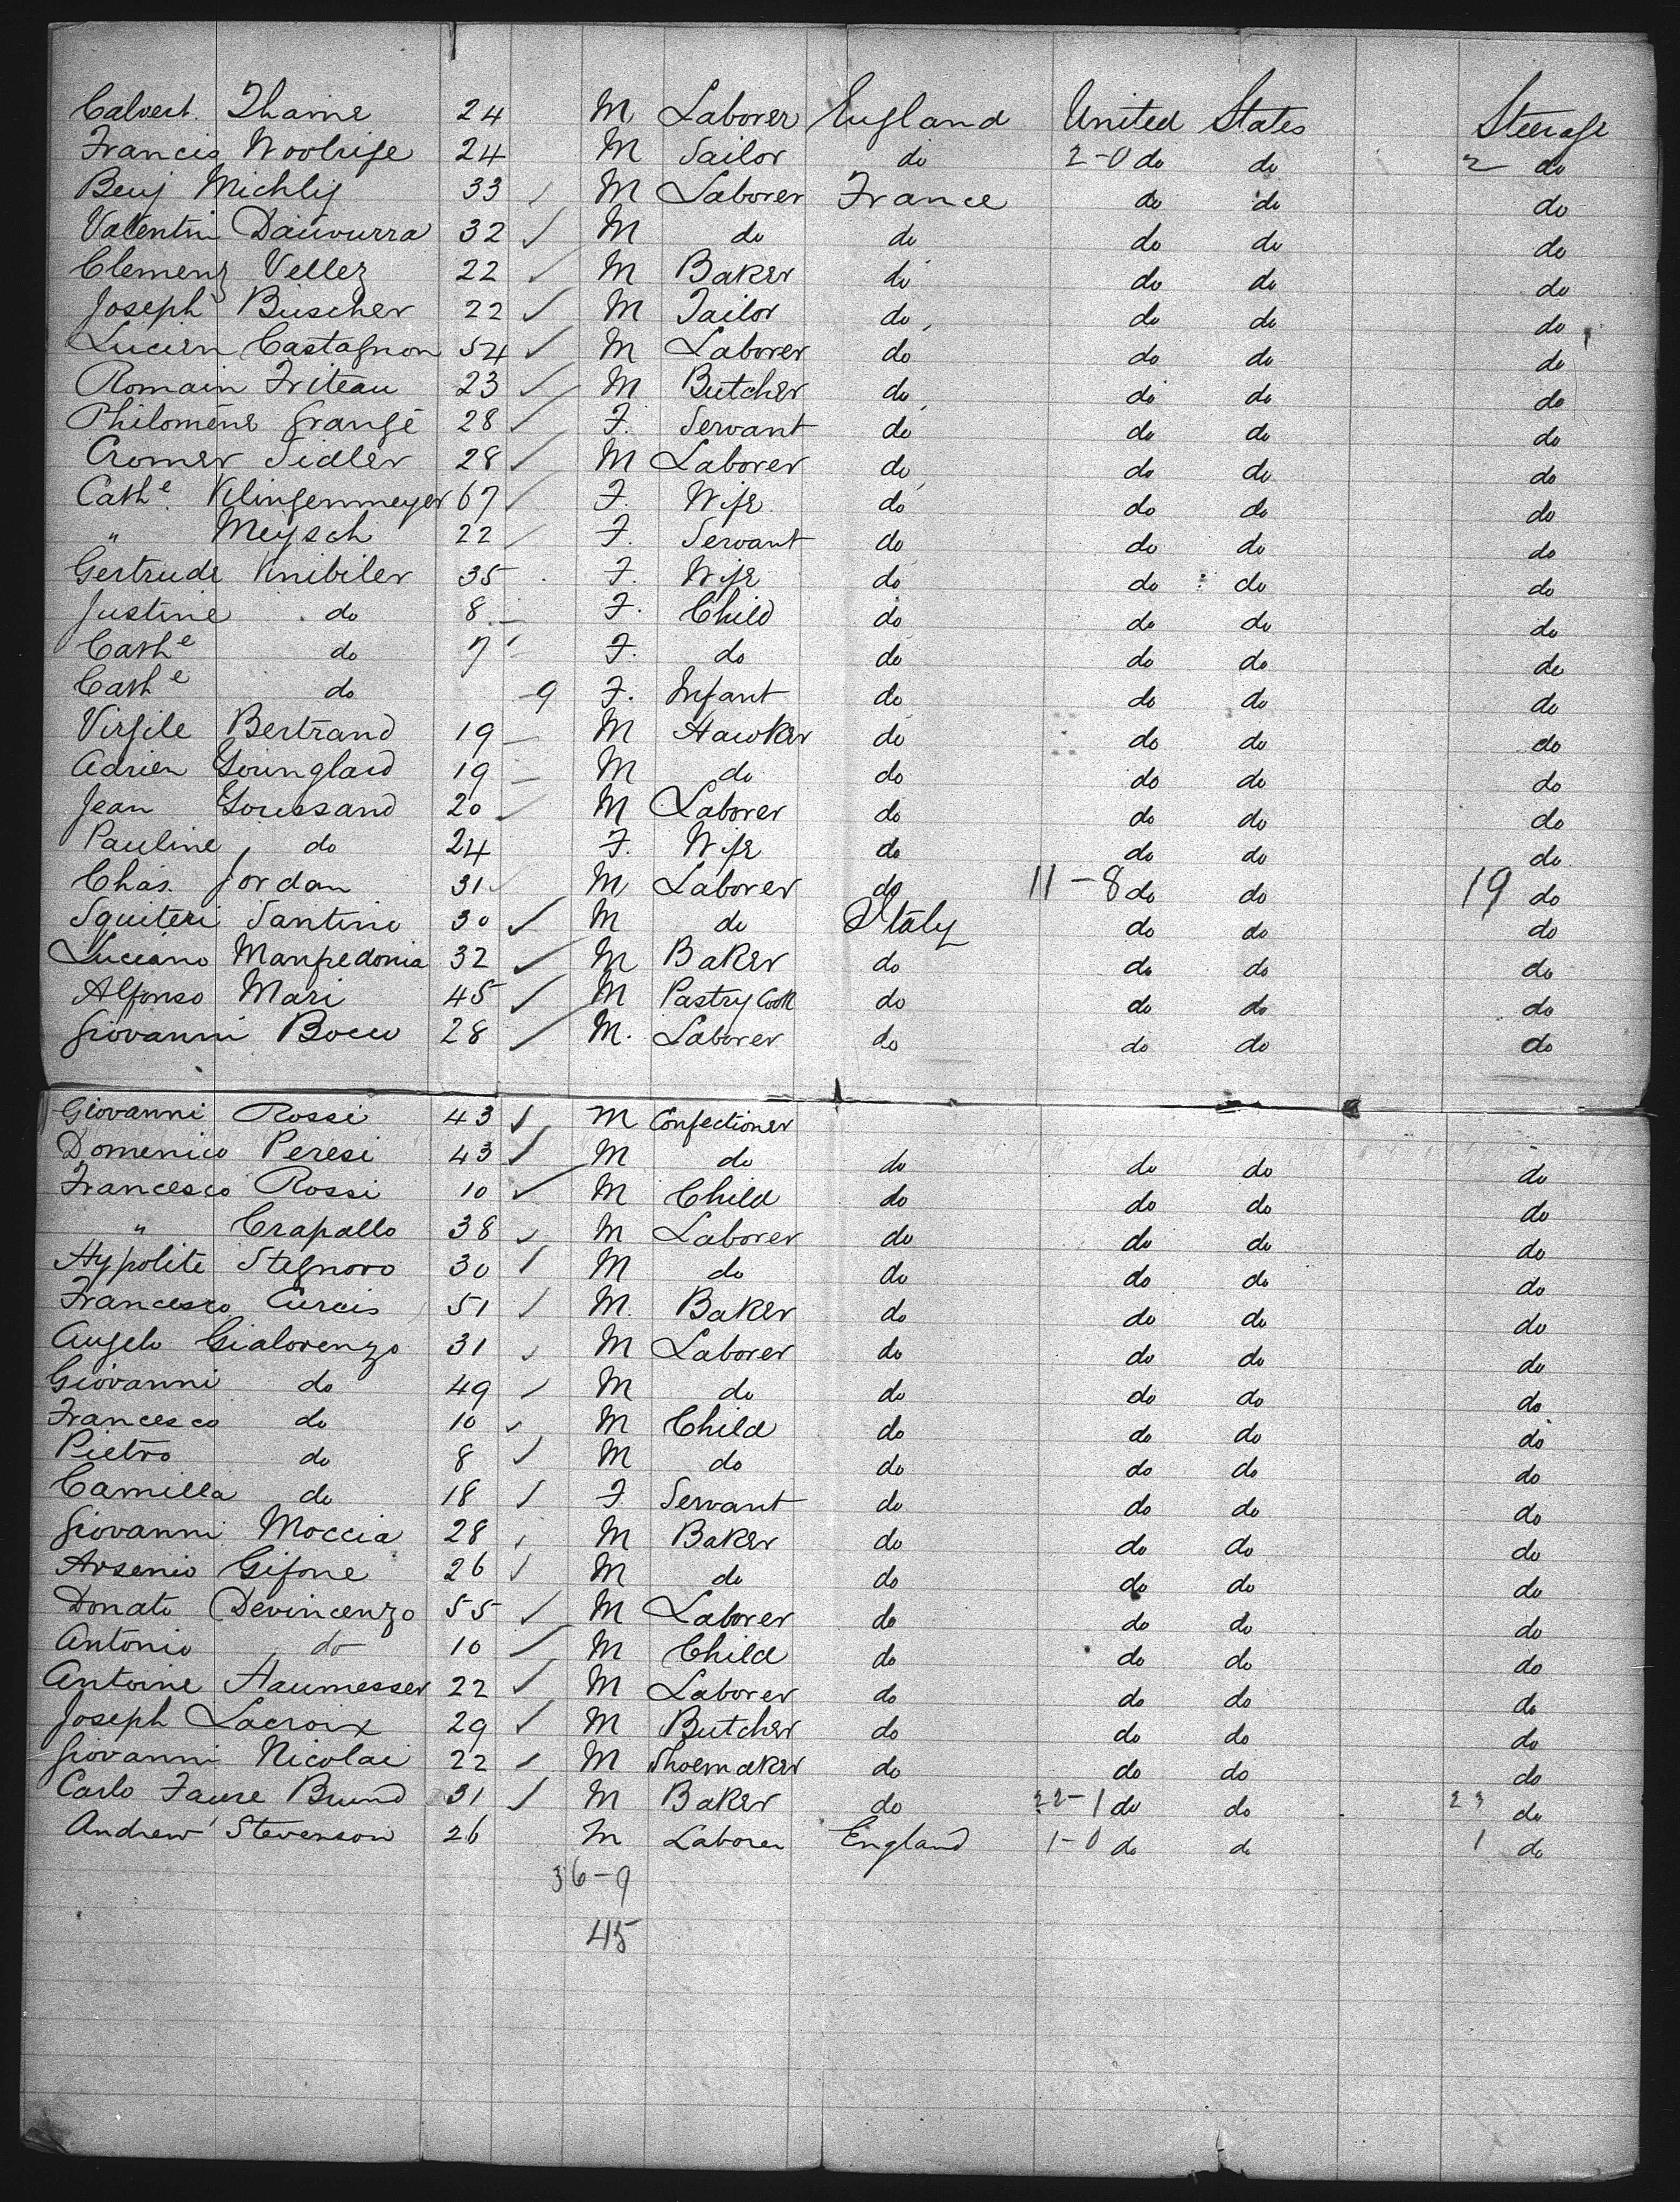 Calvert Thame 24 M Laborer England United States Steerage
Francis Woolrige 24 M Sailor do 2-0 do do 2 do
Benj Michlig 33 M Laborer France do do do
Valentin 32 M do do do do do
Clemenz Vellez 22 M Baker do do do do
Joseph Büscher 22 M Tailor do do do do
Lucien Castagnon 54 M Laborer do do do do
Romain Friteau 23 M Butcher do do do do
Philomène Grangé 28 F. Servant do do do do
Cromer Sidler 28 M Laborer do do do do
Cathe Klingenmeyer 67 F. Wife do do do do
" Meysch 22 F. Servant do do do do
Gertrude Knibiler 35 F. Wife do do do do
Justine do 8 F. Child do do do do
Cathe do 7 F. do do do do do
Cathe do 9 F. Infant do do do do
Virgile Bertrand 19 M Hawker do do do do
Adrien 19 M do do do do do
Jean Goussand 20 M Laborer do do do do
Pauline do 24 F. Wife do do do do
Chas. Jordan 31 M Laborer do 11-8 do do 19 do
Squiteri Santino 30 M do Italy do do do
Luciano Manpedonia 32 M Baker do do do do
Alfonso Mari 45 M Pastry Cook do do do do
Giovanni Bocco 28 M. Laborer do do do do
Giovanni Rossi 43 M Confectioner
Domenico Peresi 43 M do do do do do
Francesco Rossi 10 M Child do do do do
" Crapallo 38 M Laborer do do do do
Hypolite Stagnoro 30 M do do do do do
Francesco Curcis 51 M. Baker do do do do
Angelo Gialorenzo 31 M Laborer do do do do
Giovanni do 49 M do do do do do
Francesco do 10 M Child do do do do
Pietro do 8 M do do do do do
Camilla do 18 F Servant do do do do
Giovanni Moccia 28 M Baker do do do do
Arsenio Gifone 26 M do do do do do
Donato Devincenzo 55 M Laborer do do do do
Antonio do 10 M Child do do do do
Antoine Haumesser 22 M Laborer do do do do
Joseph Lacroix 29 M Butcher do do do do
Giovanni Nicolai 22 M Shoemaker do do do do
Carlo Faure Brund 31 M Baker do 22-1 do do 23 do
Andrew Stevenson 26 M Laborer England 1-0 do do 1 do
36-9
45